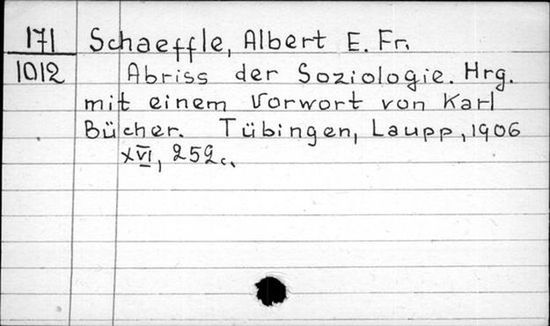 171 Schaeffle, Albert E. Fr.
1012 Abriss der Soziologie. Hrg.
mit einem Vorwort von Karl
Bücher. Tübingen, Laupp, 1906
XVI, 252c.